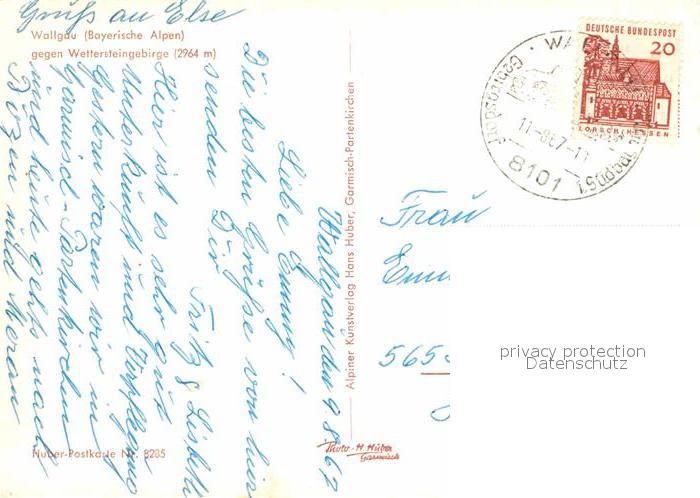 Gruß an Else
Wallgau (Bayerische Alpen)
gegen Wettersteingebirge (2964 m)
Wallgau den 9.8.67
Liebe Emmy!
Die besten Grüße von hier
senden Dir
Fritz & Lisbeth
Hier ist es sehr gut
Unterkunft und Verpflegung
Gestern waren wir in
Garmisch-Partenkirchen
und heute gehts nach
Bozen und Meran
Huber-Postkarte Nr. 8285
Alpiner Kunstverlag Hans Huber, Garmisch-Partenkirchen
Photo-H. Huber
Garmisch
DEUTSCHE BUNDESPOST
20
LORSCH/HESSEN
8101
Frau
565
privacy protection
Datenschutz